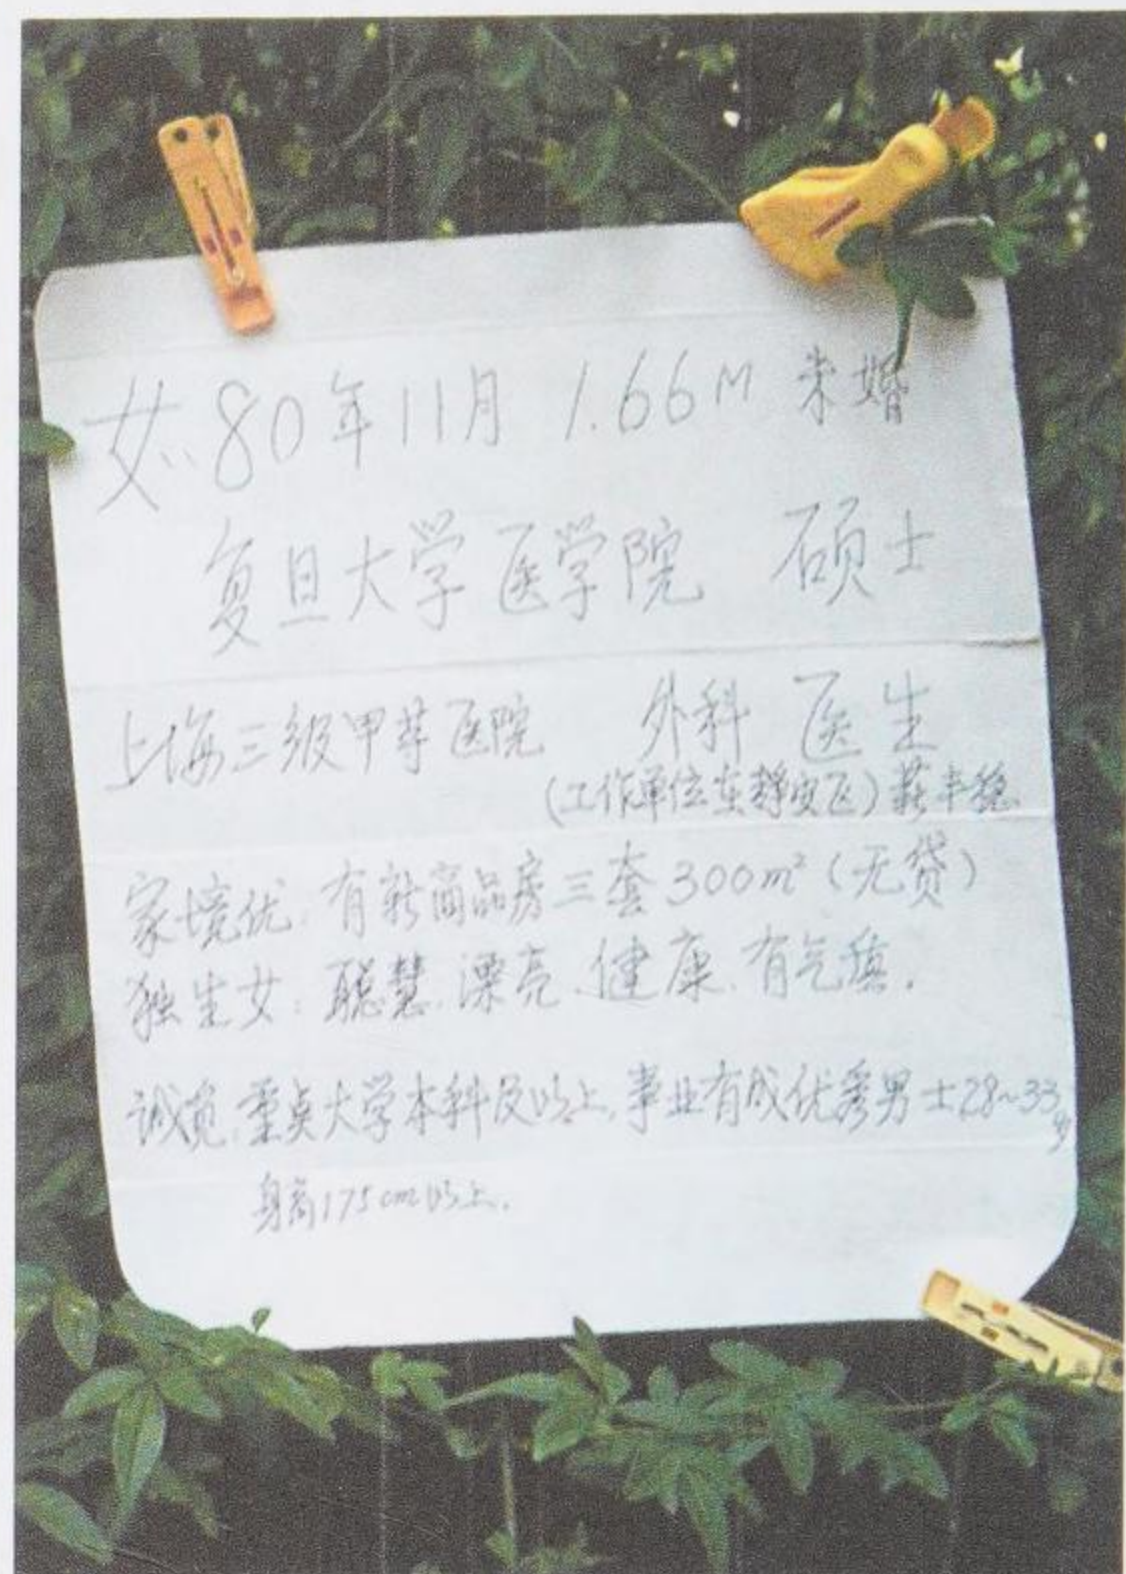 女、80年11月 1.66M 未婚
复旦大学医学院 硕士
上海三级甲等医院 外科 医生
(工作单位在静安区) 薪丰稳
家境优、有新商品房三套300m²(无贷)
独生女、聪慧、漂亮、健康、有气质.
诚觅、重点大学本科及以上,事业有成优秀男士28~33岁
身高175cm以上.